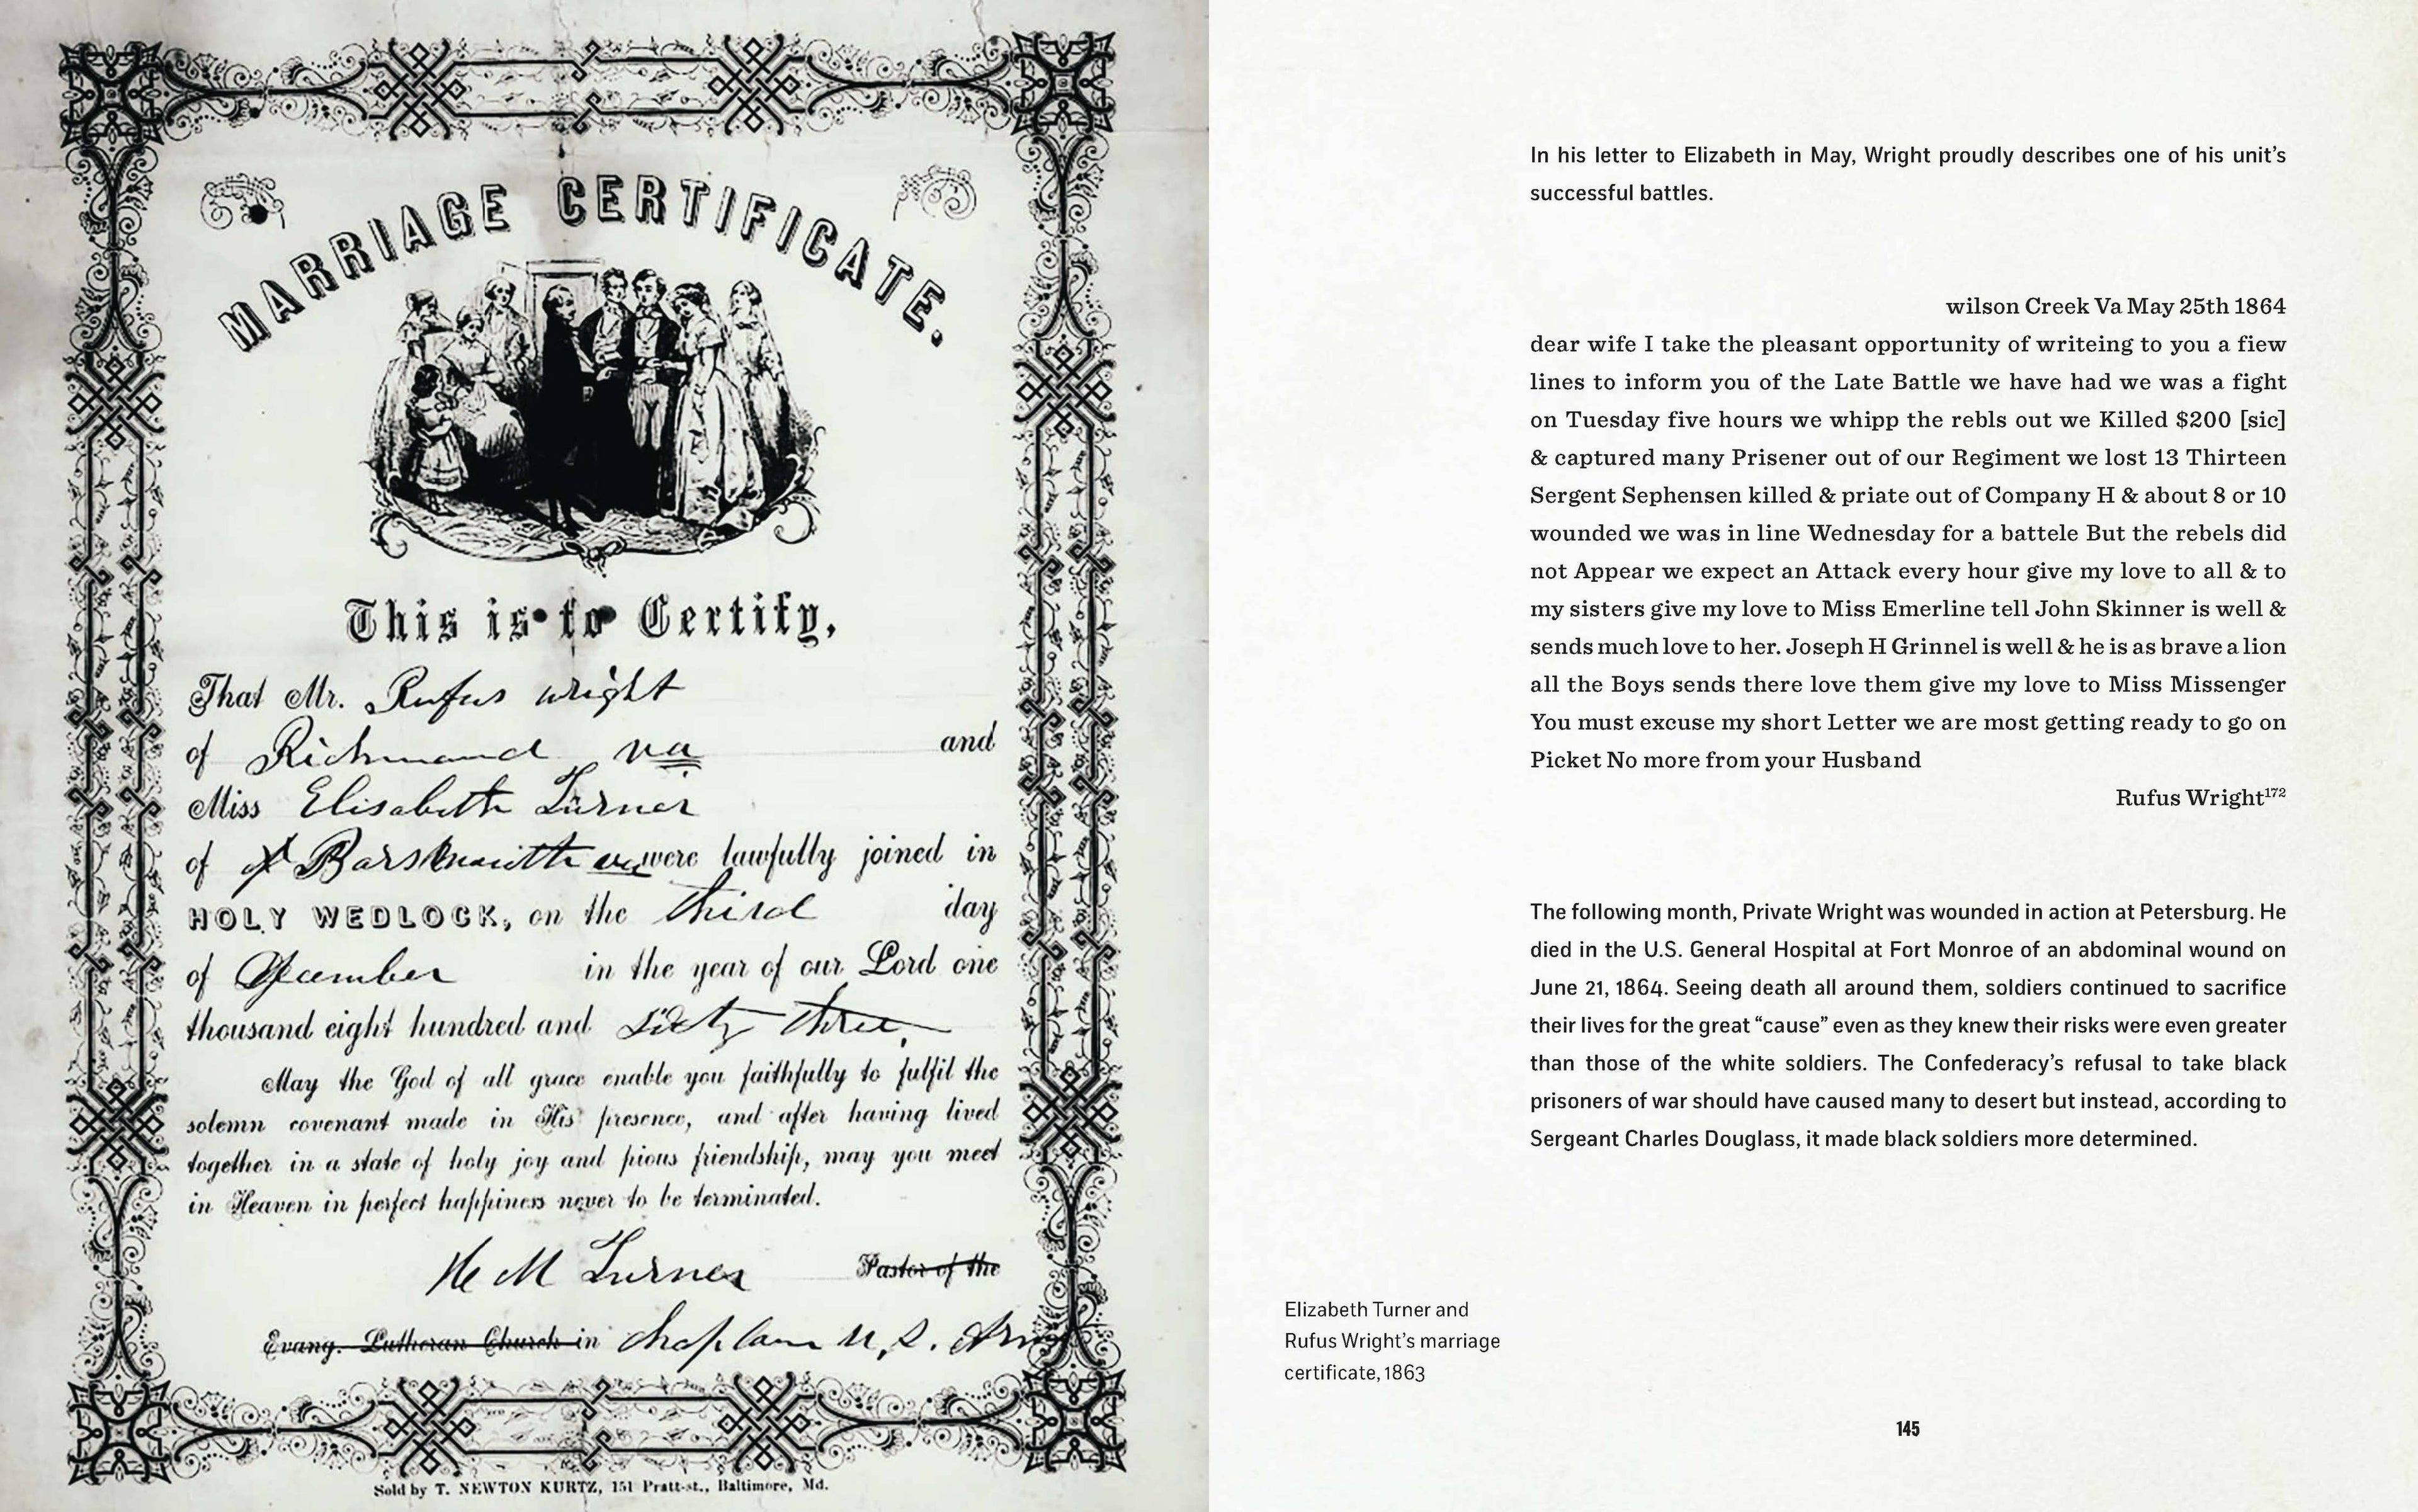 MARRIAGE CERTIFICATE.
This is to Certify,
That Mr. Rufus wright
of Richmond va and
Miss Elisabeth Turner
of were lawfully joined in
HOLY WEDLOCK, on the third day
of December in the year of our Lord one
thousand eight hundred and sixty three,
May the God of all grace enable you faithfully to fulfil the
solemn covenant made in His presence, and after having lived
together in a state of holy joy and pious friendship, may you meet
in Heaven in perfect happiness never to be terminated.
M Turner Pastor of the
Evang. Lutheran Church in chaplain U, S. Army
Sold by T. NEWTON KURTZ, 151 Pratt-st., Baltimore, Md.
In his letter to Elizabeth in May, Wright proudly describes one of his unit’s
successful battles.
wilson Creek Va May 25th 1864
dear wife I take the pleasant opportunity of writeing to you a fiew
lines to inform you of the Late Battle we have had we was a fight
on Tuesday five hours we whipp the rebls out we Killed $200 [sic]
& captured many Prisener out of our Regiment we lost 13 Thirteen
Sergent Sephensen killed & priate out of Company H & about 8 or 10
wounded we was in line Wednesday for a battele But the rebels did
not Appear we expect an Attack every hour give my love to all & to
my sisters give my love to Miss Emerline tell John Skinner is well &
sends much love to her. Joseph H Grinnel is well & he is as brave a lion
all the Boys sends there love them give my love to Miss Missenger
You must excuse my short Letter we are most getting ready to go on
Picket No more from your Husband
Rufus Wright172
The following month, Private Wright was wounded in action at Petersburg. He
died in the U.S. General Hospital at Fort Monroe of an abdominal wound on
June 21, 1864. Seeing death all around them, soldiers continued to sacrifice
their lives for the great “cause” even as they knew their risks were even greater
than those of the white soldiers. The Confederacy’s refusal to take black
prisoners of war should have caused many to desert but instead, according to
Sergeant Charles Douglass, it made black soldiers more determined.
Elizabeth Turner and
Rufus Wright’s marriage
certificate, 1863
145